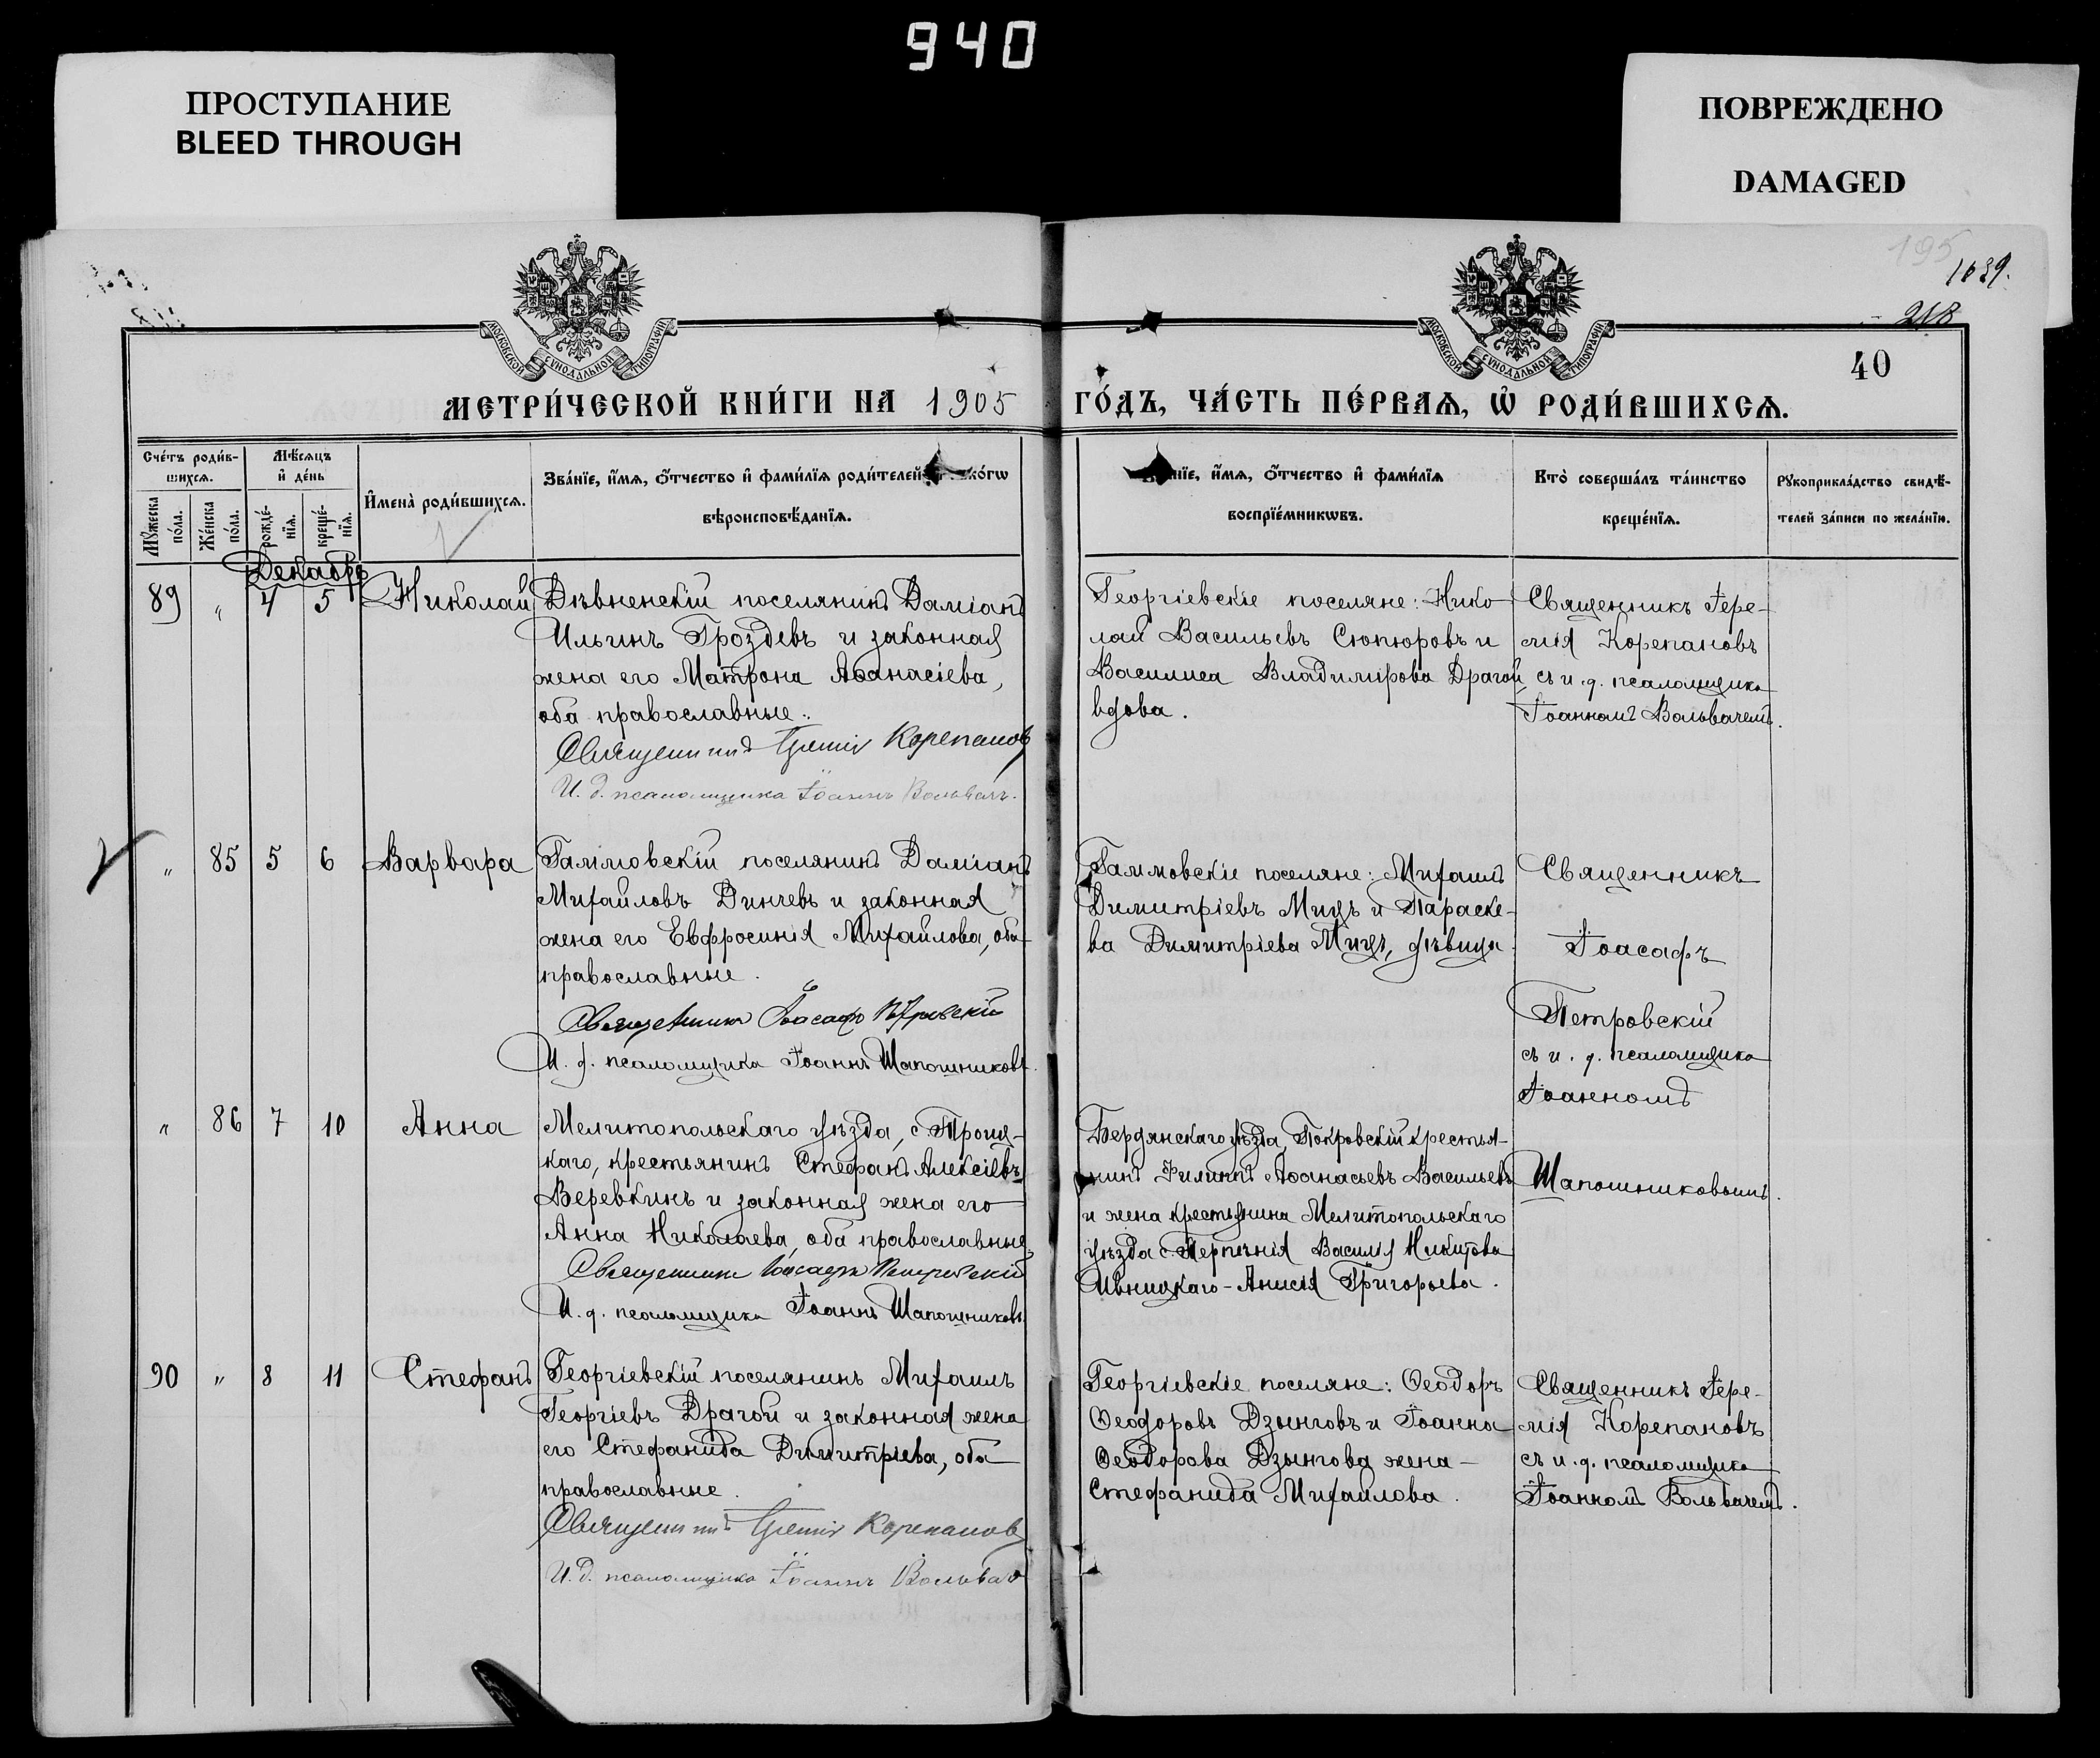 940
ПРОСТУПАНИЕ
BLEED THROUGH
ПОВРЕЖДЕНО
DAMAGED
195
1039.
218
40
МОСКОВСКОЙ СУНОДАЛЬНОЙ ТИПОГРАФІИ
МОСКОВСКОЙ СУНОДАЛЬНОЙ ТИПОГРАФІИ
МЕТРИ́ЧЕСКОЙ КНИ́ГИ НА 1905 ГО́ДЪ, ЧА́СТЬ ПЕ́РВАѦ, Ѡ҆ РОДИ́ВШИХСѦ.
Сче́тъ роди́в-
шихсѧ.
Мꙋ́жеска по́ла.
Же́нска по́ла.
Мѣ́сѧцъ
и҆ де́нь
рожде́-
нїѧ.
креще́-
нїѧ.
И҆мена̀ роди́вшихсѧ.
Зва́нїе, и҆́мѧ, ѻ҆́тчество и҆ фами́лїѧ роди́телей
вѣроисповѣ́данїѧ.
и҆́мѧ, ѻ҆́тчество и҆ фами́лїѧ
воспрїе́мникѡвъ.
Кто̀ соверша́лъ та́инство
креще́нїѧ.
Рꙋкоприкла́дство свидѣ́-
телей за́писи по жела́нїю.
Декабрь
89 " 4 5 Николай
Дѣвненскій поселянинъ Даміанъ
Ильинъ Гроздевъ и законная
жена его Матрона Аѳанасіева,
оба православные.
Священникъ Іеремія Корепановъ
И. д. псаломщика Іоаннъ Вольвачъ.
Георгіевскіе поселяне: Нико-
лай Васильевъ Сюпюровъ и
Василиса Владимірова Драгой,
вдова.
Священникъ Іере-
мія Корепановъ
съ и. д. псаломщика
Іоанномъ Вольвачемъ.
" 85 5 6 Варвара
Гаммовскій поселянинъ Даміанъ
Михайловъ Динчевъ и законная
жена его Евфросинія Михайлова, оба
православные.
Священникъ Іоасафъ Петровскій
И. д. псаломщика Іоаннъ Шапошниковъ.
Гаммовскіе поселяне: Михаилъ
Димитріевъ Мицъ и Параске-
ва Димитріева Мицъ, дѣвица.
Священникъ
Іоасафъ
Петровскій
съ и. д. псаломщика
Іоанномъ
Шапошниковымъ.
" 86 7 10 Анна
Мелитопольскаго уѣзда, с. Троиц-
каго, крестьянинъ Стефанъ Алексіевъ
Веревкинъ и законная жена его
Анна Николаева, оба православные.
Священникъ Іоасафъ Петровскій
И. д. псаломщика Іоаннъ Шапошниковъ.
Бердянскаго уѣзда, Покровскій крестья-
нинъ Филиппъ Аѳанасьевъ Васильевъ
и жена крестьянина Мелитопольскаго
уѣзда с. Терпѣнія Василія Никитова
Ивницкаго - Анисія Григорьева.
90 " 8 11 Стефанъ
Георгіевскій поселянинъ Михаилъ
Георгіевъ Драгой и законная жена
его Стефанида Димитріева, оба
православные.
Священникъ Іеремія Корепановъ
И. д. псаломщика Іоаннъ Вольвачъ
Георгіевскіе поселяне: Ѳеодоръ
Ѳеодоровъ Дзынговъ и Іоанна
Ѳеодорова Дзынгова жена -
Стефанида Михайлова.
Священникъ Іере-
мія Корепановъ
съ и. д. псаломщика
Іоанномъ Вольвачемъ.